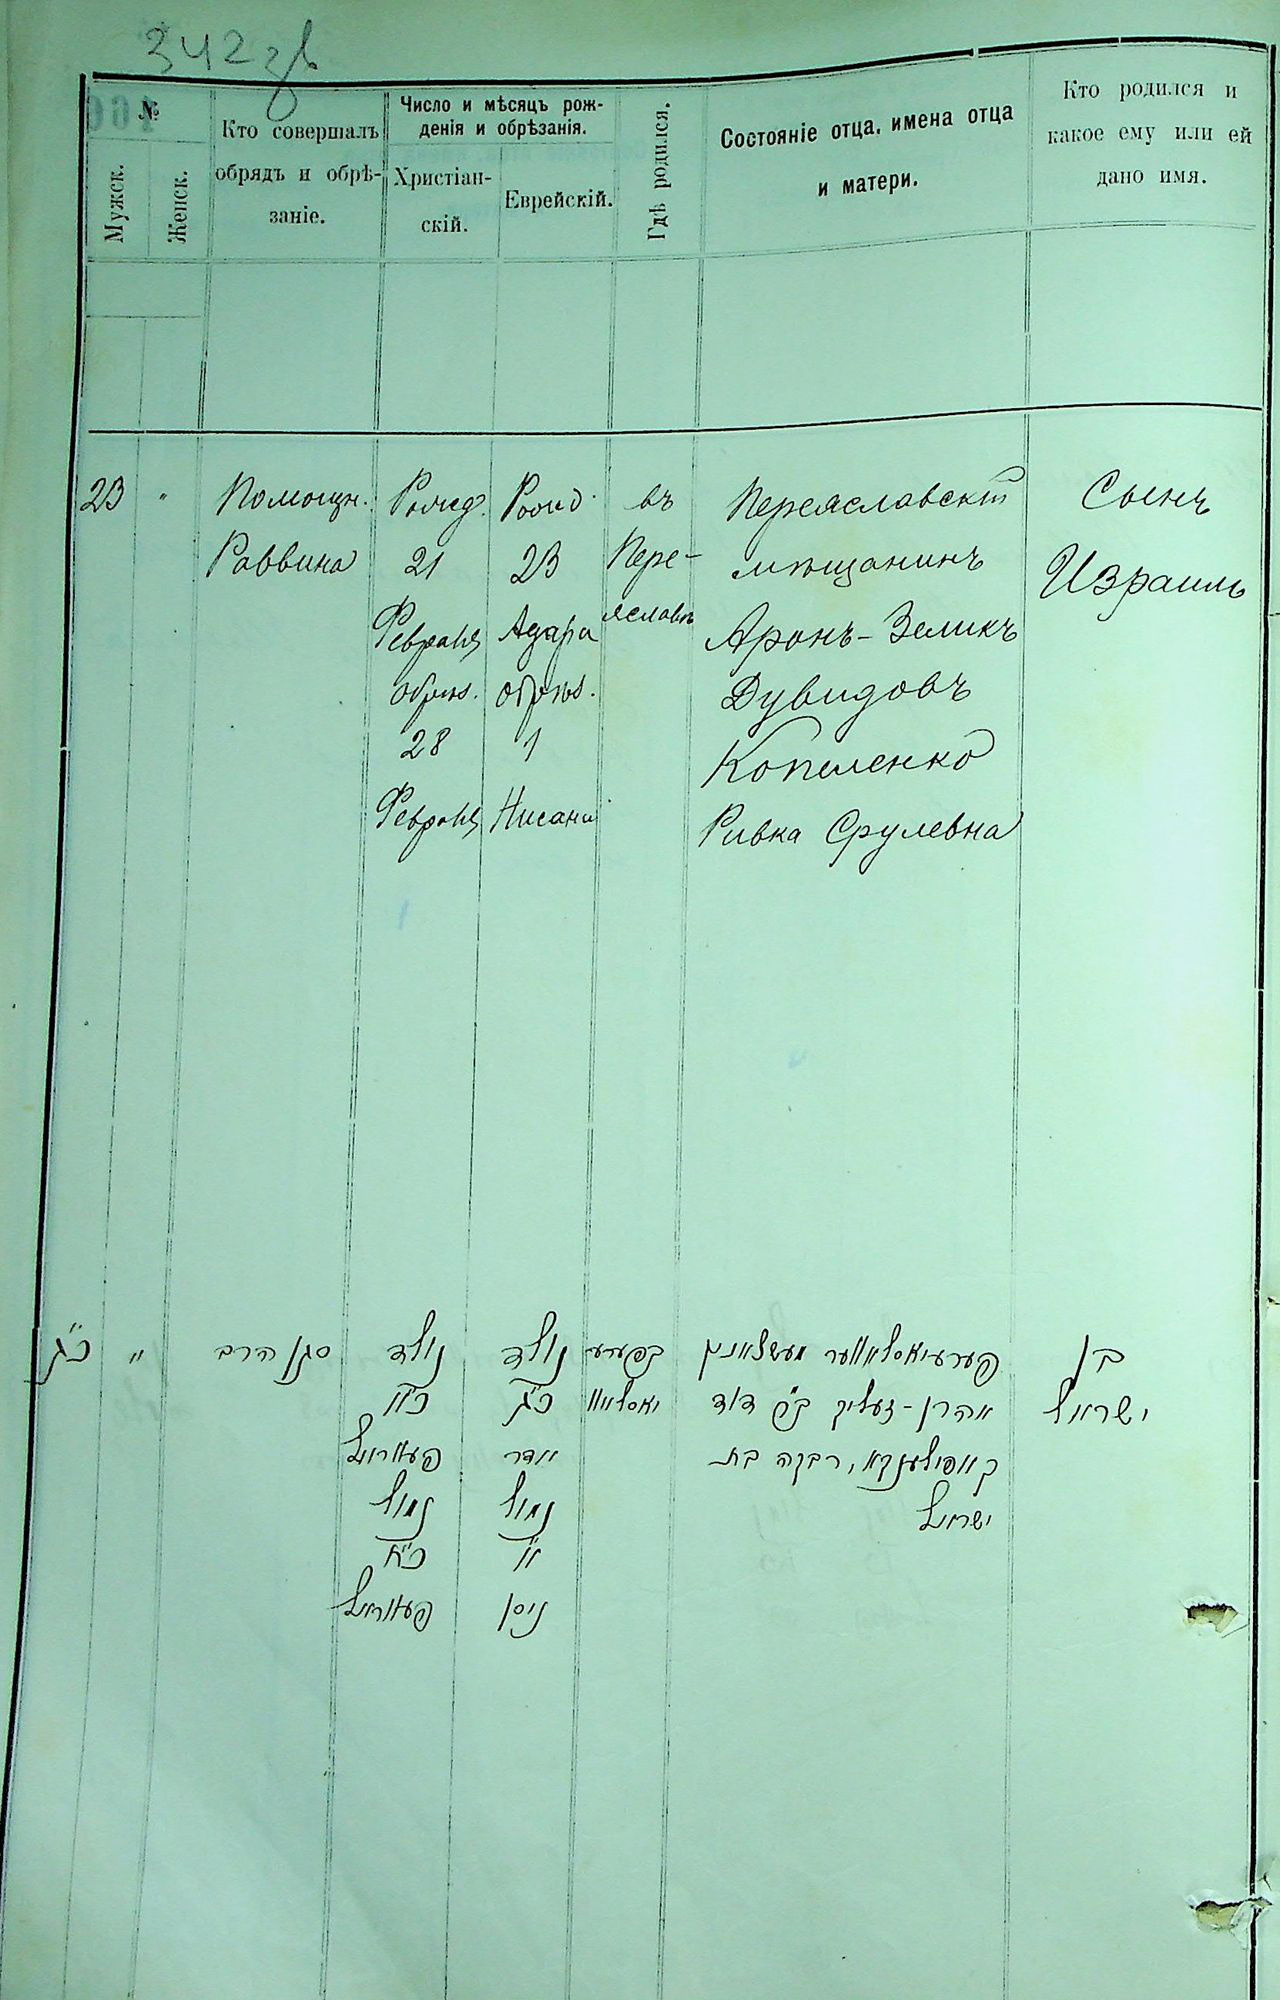 342 зв
№
Мужск.
Женск.
Кто совершалъ
обрядъ и обрѣ-
заніе.
Число и мѣсяцъ рож-
денія и обрѣзанія.
Христіан-
скій.
Еврейскій.
Гдѣ родился.
Состояніе отца, имена отца
и матери.
Кто родился и
какое ему или ей
дано имя.
23 "
Помощн.
Раввина
Рожд.
21
Февраля
обрѣз.
28
Февраля
Рожд.
23
Адара
обрѣз.
1
Нисана
въ
Пере-
яславѣ
Переяславскій
мѣщанинъ
Аронъ-Зеликъ
Дувидовъ
Копеленко
Ривка Срулевна
Сынъ
Израиль
כ"ג "
סגן הרב
נולד
כ"א
פעװראל
נמול
כ"ח
פעװראל
נולד
כ"ג
אדר
נמול
א'
ניסן
בפערע
יאסלאוו
פערעיאסלאווער מעשצאנין
אהרן-זעליק ב"ר דוד
קאפילענקא, רבקה בת
ישראל
בן
ישראל